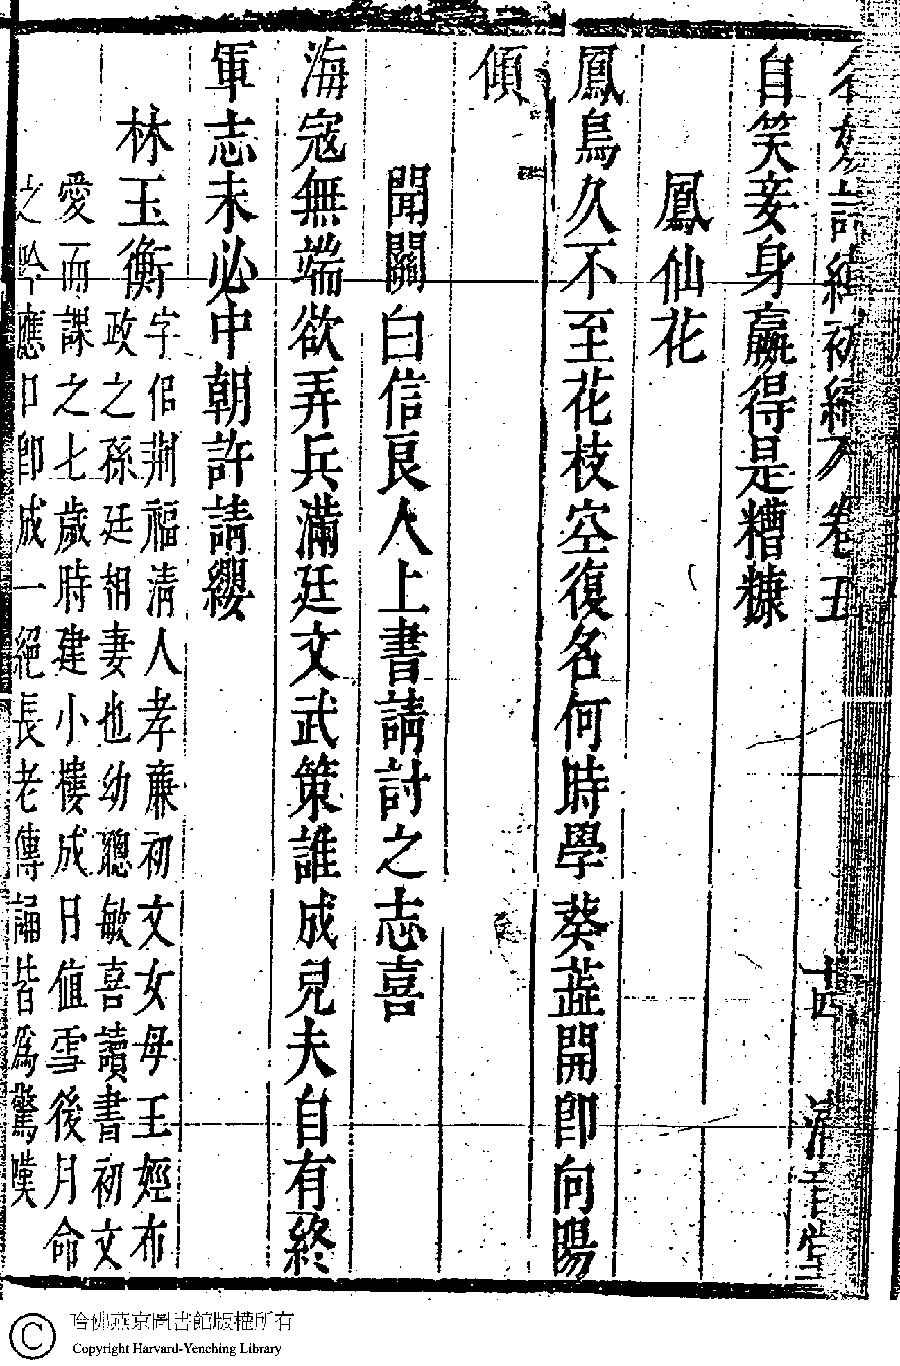 詩緯初編 卷五 十四 清音堂
自笑妾身贏得是糟糠
鳳仙花
鳳鳥久不至花枝空復名何時學葵蕋開卽向陽
傾
聞關白信良人上書請討之志喜
海寇無端欲弄兵滿廷文武策誰成兒夫自有終
軍志未必中朝許請纓
林玉衡字佀荆福清人孝廉初文女母王娙布
政之孫廷相妻也幼聰敏喜讀書初文
愛而課之七歲時建小樓成日值雪後月命
之吟應口卽成一絕長老傳誦皆為驚嘆
哈佛燕京圖書館版權所有
Copyright Harvard-Yenching Library